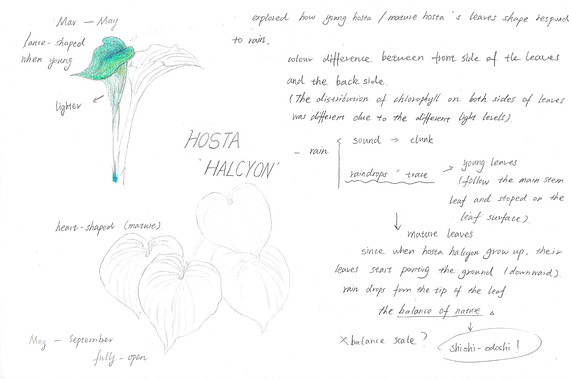 Mar — May
lance-shaped
when young
lighter
HOSTA
'HALCYON'
heart-shaped (mature)
May — September
fully-open
explored how young hosta / mature hosta's leaves shape respond
to rain.
colour difference between front side of the leaves
and the back side.
(The distribution of chlorophyll on both sides of leaves
was different due to the different light levels).
– rain
sound → clunk
raindrops' trace
→ young leaves
(follow the main stem
leaf and stoped on the
leaf surface)
↓
mature leaves
since when hosta halcyon grow up, their
leaves start pointing the ground (downward).
rain drops from the tip of the leaf.
the balance of nature
↓
× balance scale?
shishi-odoshi!